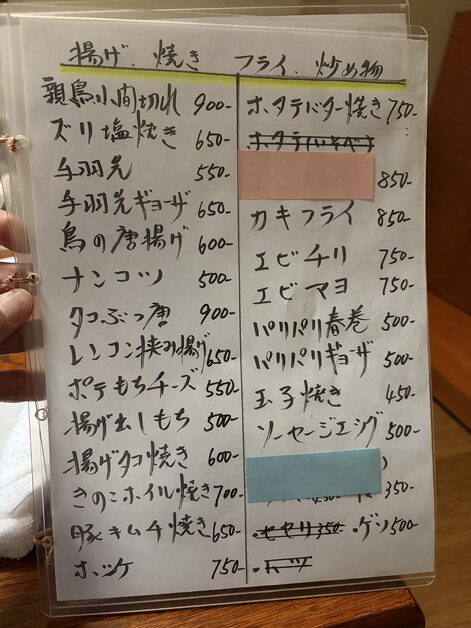 揚げ、焼き フライ、炒め物
親鳥小間切れ 900-
ズリ塩焼き 650-
手羽先 550-
手羽先ギョーザ 650-
鳥の唐揚げ 600-
ナンコツ 500-
タコぶつ唐 900-
レンコン挟み揚げ 650-
ポテもちチーズ 550-
揚げ出しもち 500-
揚げタコ焼き 600-
きのこホイル焼き 700-
豚キムチ焼き 650-
ホッケ 750-
ホタテバター焼き 750-
850-
カキフライ 850-
エビチリ 750-
エビマヨ 750-
パリパリ春巻 500-
パリパリギョーザ 500-
玉子焼き 450-
ソーセージエッグ 500-
350-
・セセリ 350 ・ゲソ 500-